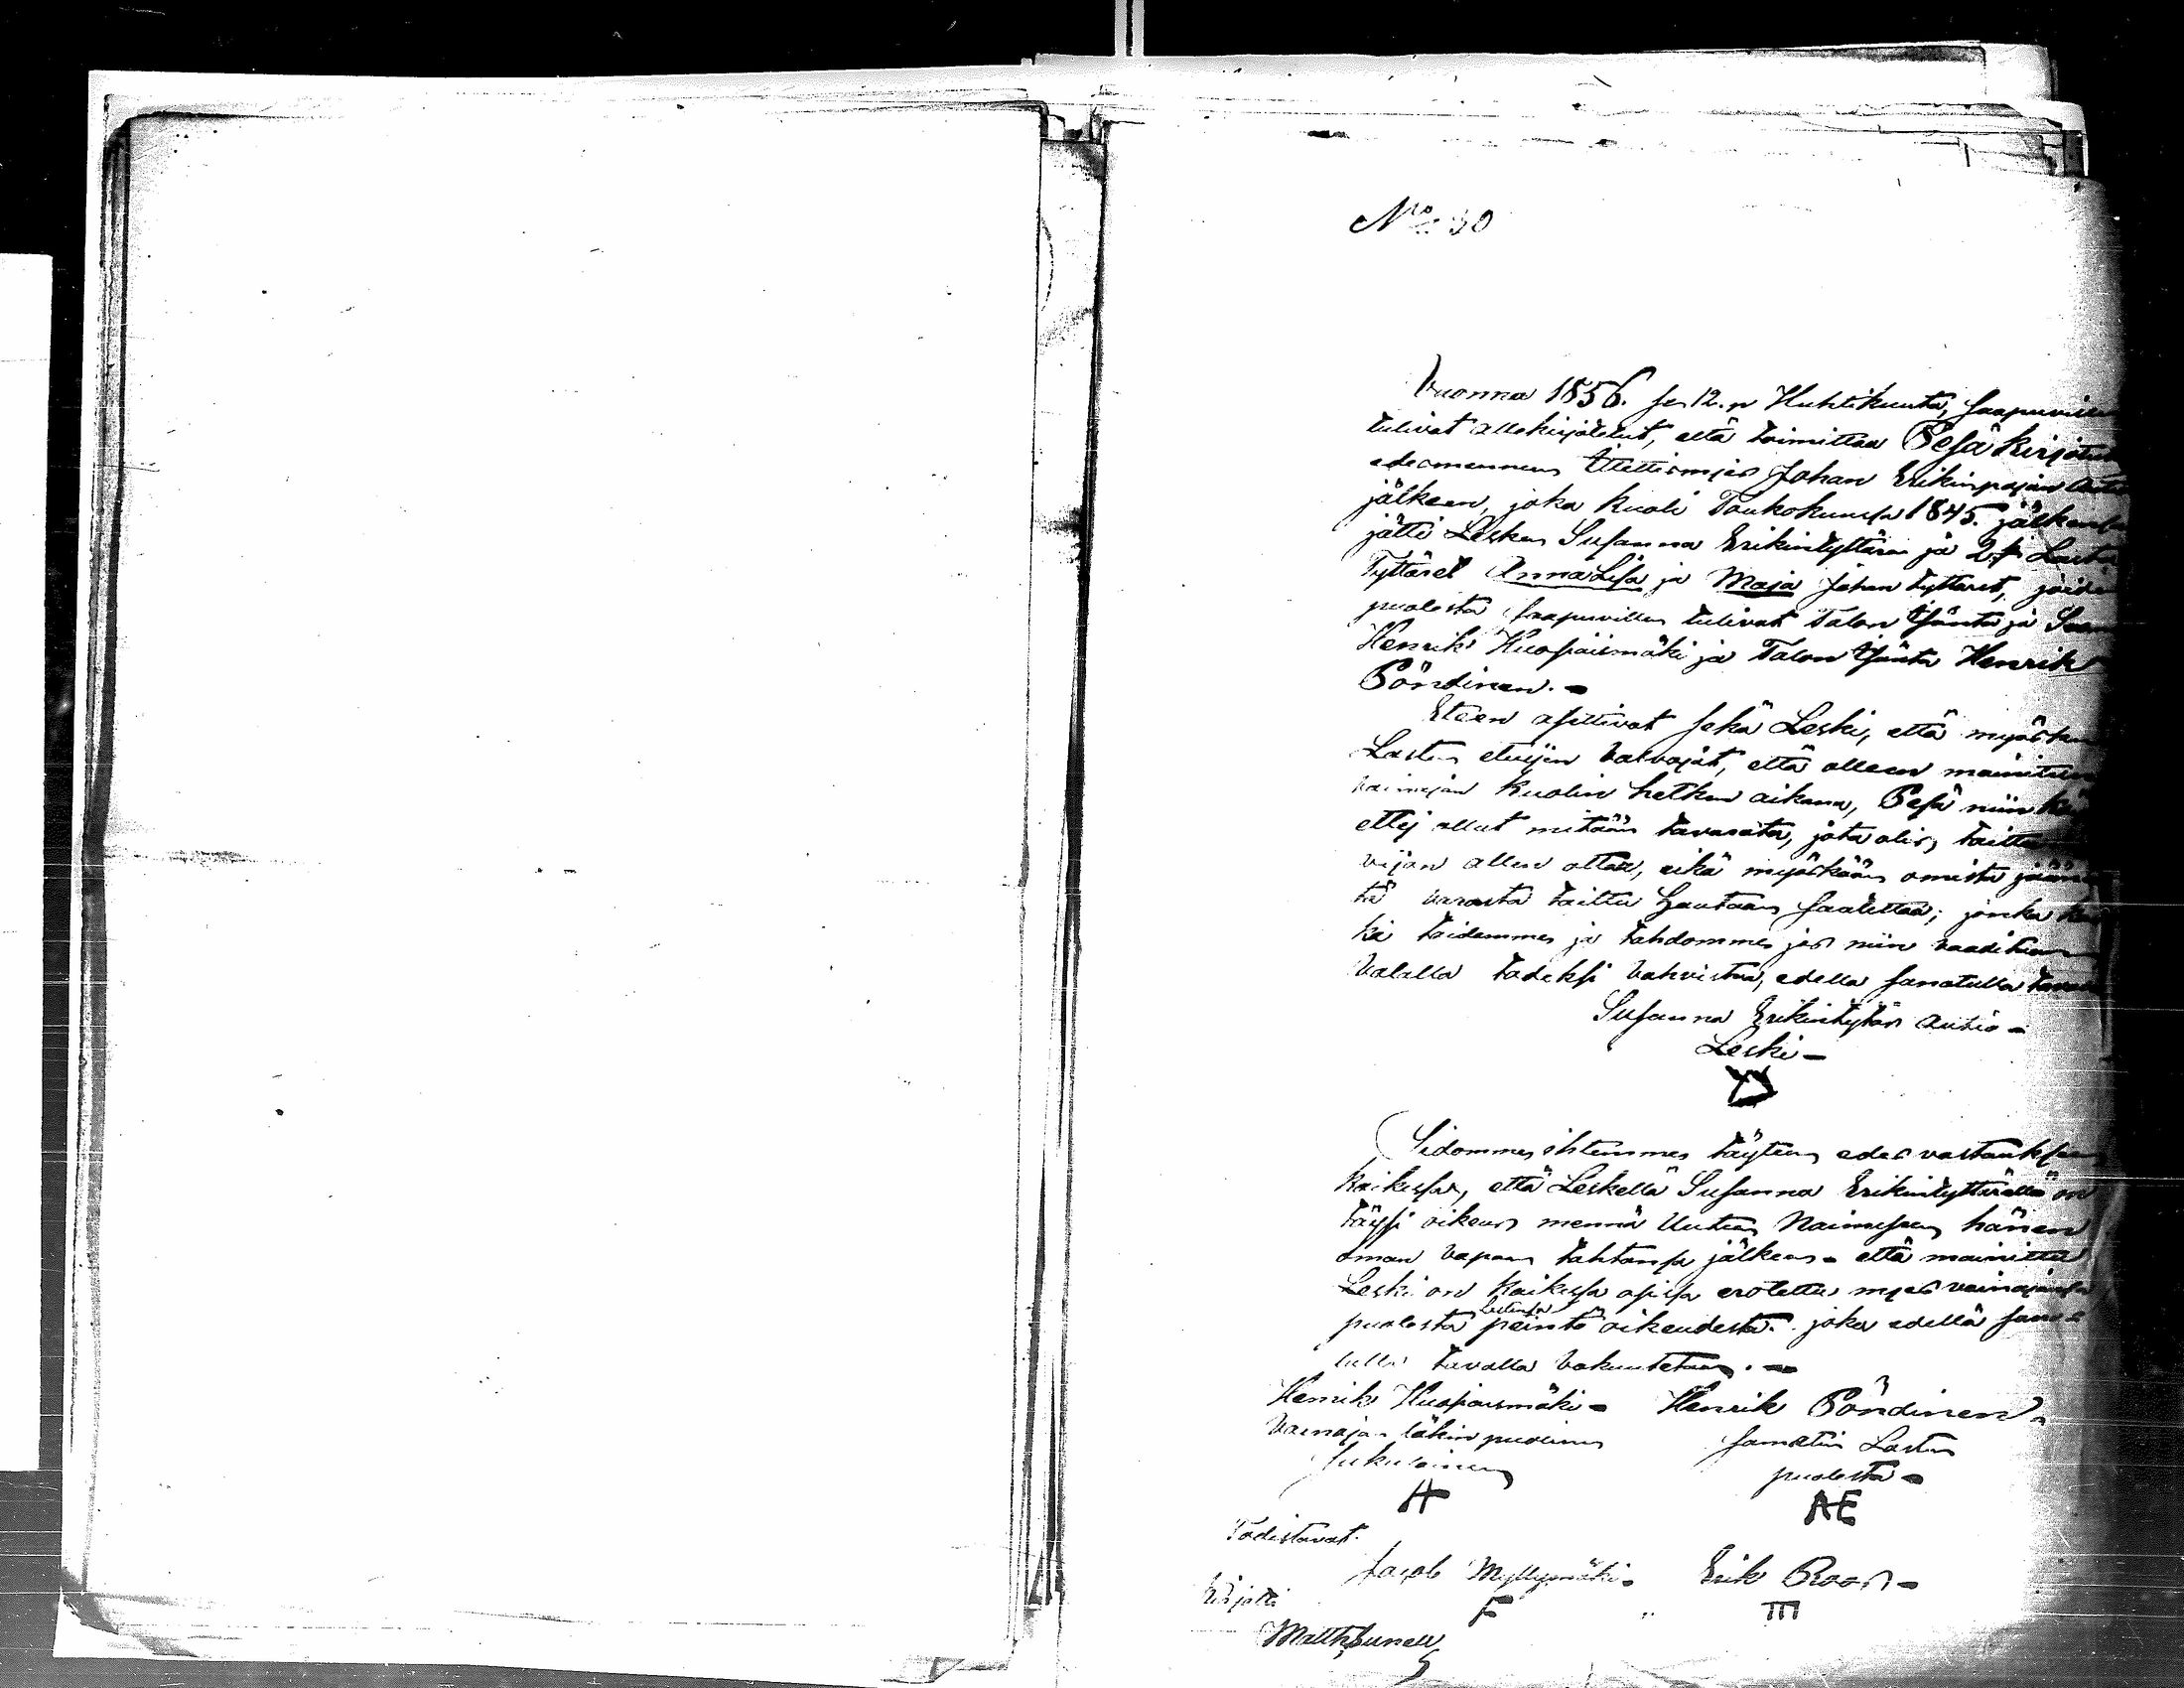 No 30
Vuonna 1856. se 12. n Huhtikuuta, saapuvillen
tulivat allekirjoitetut, että toimittaa Pesä kirjotus
edesmennen Itellismies Johan Erikinpojan Autio
jälkeen, joka kuoli Toukokuussa 1845. jälkeensä
jätti Lesken Susanna Erikintyttären ja 2 Lasta
Tyttäret Anna Lisa ja Maja Johan tyttaret, joiden
puolesta saapuvillen tulivat Talon Isäntä ja
Henrik Huopaismäki ja Talon Isäntä Henrik
Pöndinen. -
Eteen asettivat sekä Leski, että myöskin
Lasten etuijen valvojat, että olleen mainitun
vainajan kuolin hetken aikana, Pesä niin
ettej ollut mitään tavarata, jota olis, taittu
vijan allen ottaa, eikä myöskään omista
tä varasta taittu Hautaan saatettaa; jonka
kä taidamme ja tahdomme jos niin vaaditaan
Valalla todeksi vahvistaa, edella sanotulla tavalla
Susanna Erikintytär Autio -
Leski -
Sidomme ihtemme täyteen edes vastaukseen
kaikessa, että Leskellä Susanna Erikintyttärellä on
täysi oikeus mennä Uuteen Naimiseen hänen
oman vapaan tahtonsa jälkeen - että mainittu
Leski on kaikissa asisa erotettu mies vainajansa
puolesta peintö oikeudesta. joka edellä sano
tulla tavalla vakuutetaan. -
Henrik Huopaismäki - Henrik Pöndinen -
Vainajan läkin puolinen samatin Lasten
sukulainen puolesta -
H AE
Todistavat.
Jacob Myllymäki - Erik Roos -
F III
kirjotti
Matth Sunell